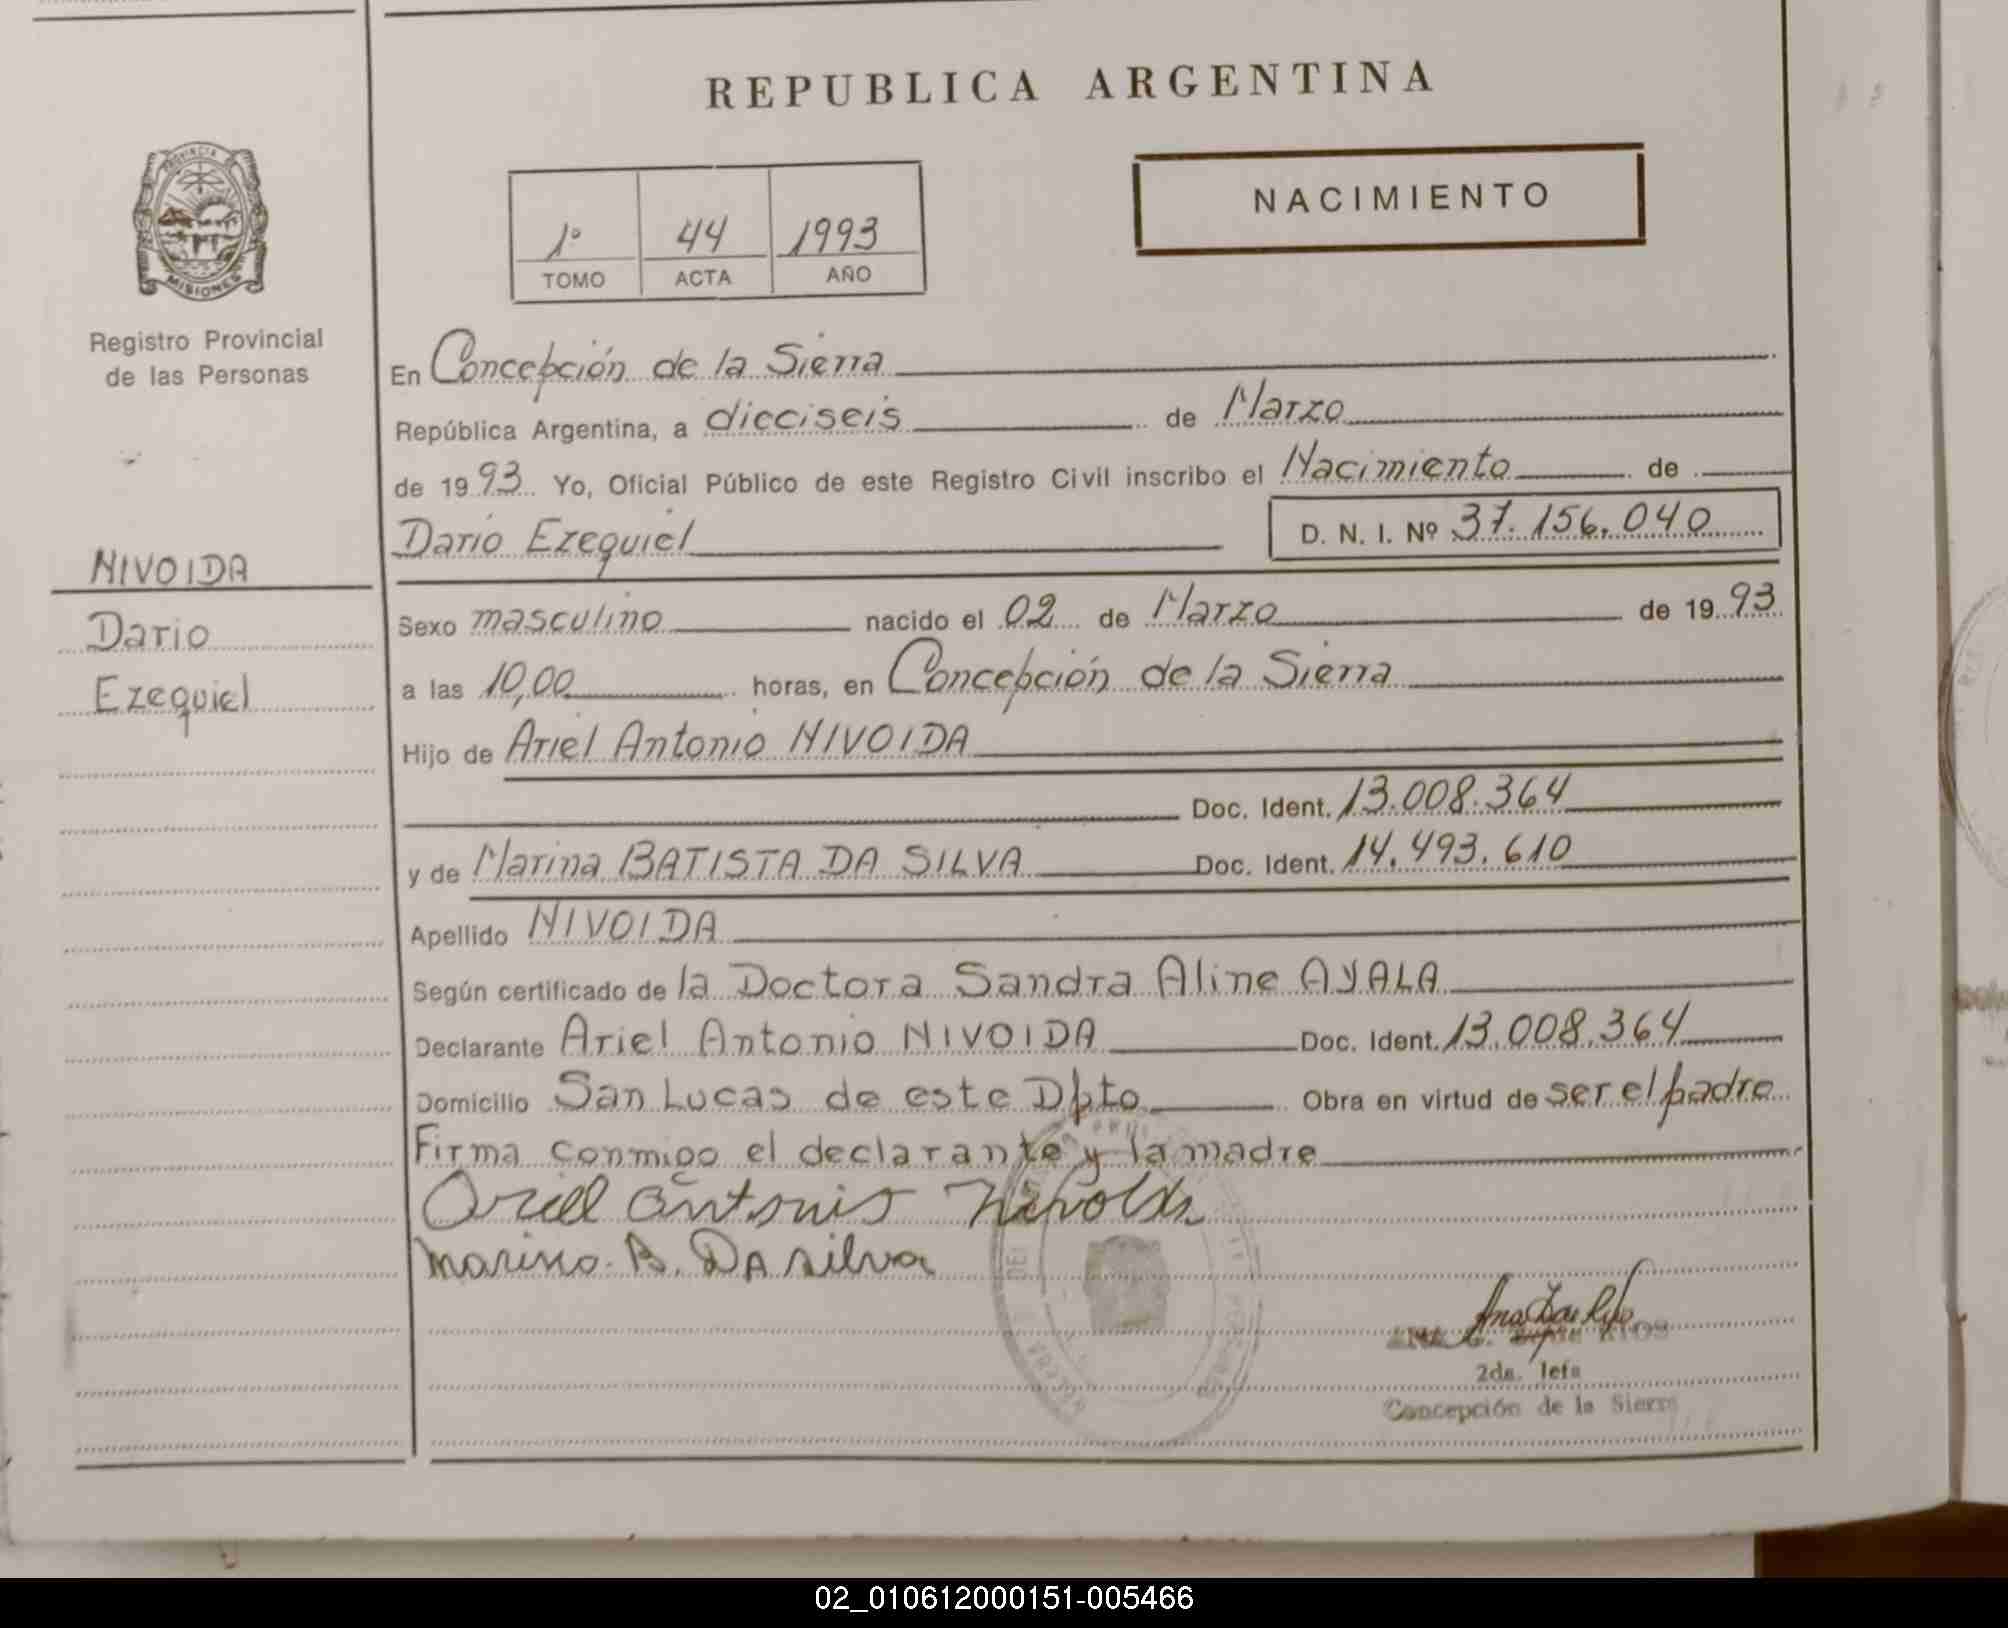 REPUBLICA ARGENTINA
PROVINCIA
MISIONES
Registro Provincial
de las Personas
NACIMIENTO
1º 44 1993
TOMO ACTA AÑO
En Concepción de la Sierra
República Argentina, a dieciseis de Marzo
de 1993 Yo, Oficial Público de este Registro Civil inscribo el Nacimiento de
Dario Ezequiel D. N. I. Nº 37.156.040
NIVOIDA
Dario
Ezequiel
Sexo masculino nacido el 02 de Marzo de 1993
a las 10,00 horas, en Concepción de la Sierra
Hijo de Ariel Antonio NIVOIDA
Doc. Ident. 13.008.364
y de Marina BATISTA DA SILVA Doc. Ident. 14.493.610
Apellido NIVOIDA
Según certificado de la Doctora Sandra Aline AYALA
Declarante Ariel Antonio NIVOIDA Doc. Ident. 13.008.364
Domicilio San Lucas de este Dpto Obra en virtud de ser el padre
Firma conmigo el declarante y la madre
Ariel Antonio
B. DA silva
2da. Jefa
Concepción de la Sierra
02_010612000151-005466